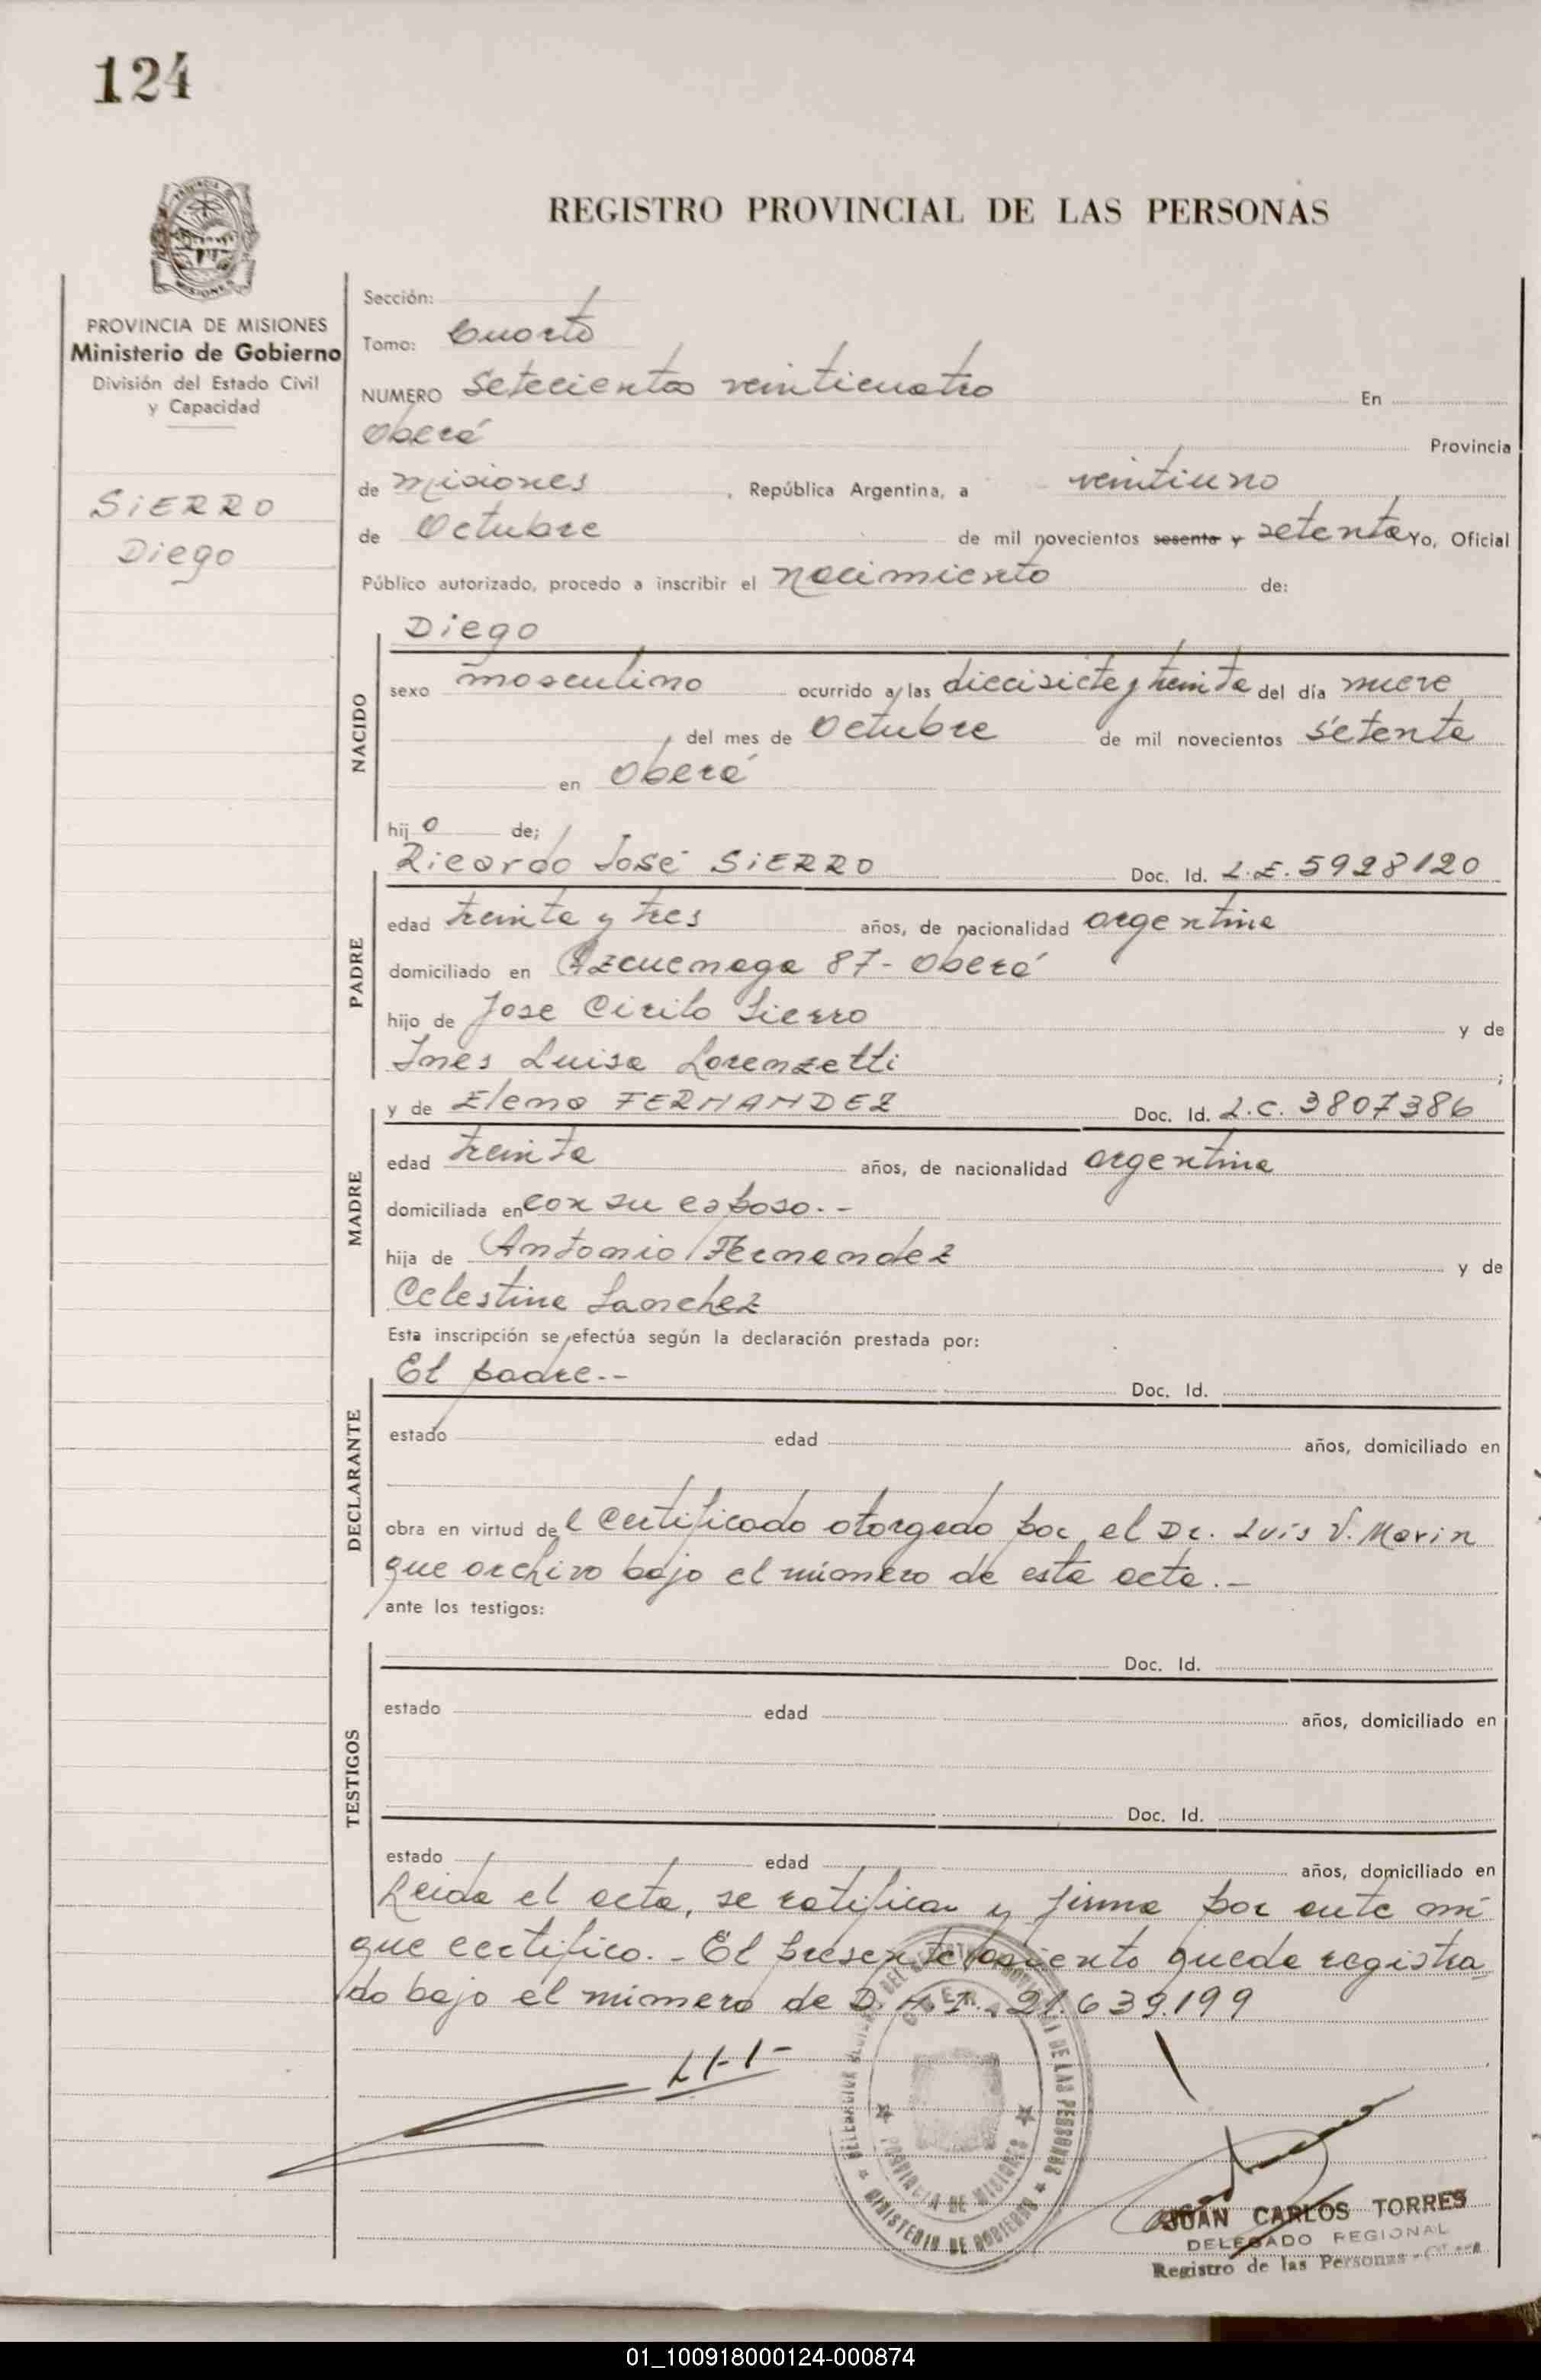 124
REGISTRO PROVINCIAL DE LAS PERSONAS
PROVINCIA DE MISIONES
Ministerio de Gobierno
División del Estado Civil
y Capacidad
SIERRO
Diego
Sección:
Tomo: Cuarto
NUMERO Setecientos veinticuatro En
Oberá Provincia
de Misiones , República Argentina, a veintiuno
de Octubre de mil novecientos sesenta y setenta Yo, Oficial
Público autorizado, procedo a inscribir el nacimiento de:
NACIDO
Diego
sexo masculino ocurrido a las diecisiete y treinta del día nueve
del mes de Octubre de mil novecientos setenta
en Oberá
hijo de;
PADRE
Ricardo José SIERRO Doc. Id. L.E. 5928120
edad treinta y tres años, de nacionalidad argentina
domiciliado en Azcuenaga 87- Oberá
hijo de Jose Cirilo Sierro y de
Ines Luisa Lorenzetti ;
MADRE
y de Elena FERNANDEZ Doc. Id. L.C. 3807386
edad treinta años, de nacionalidad argentina
domiciliada en con su esposo.-
hija de Antonio Fernandez y de
Celestina Sanchez
Esta inscripción se efectúa según la declaración prestada por:
DECLARANTE
El padre.-- Doc. Id.
estado edad años, domiciliado en
obra en virtud del certificado otorgado por el Dr. Luis V. Marin
que archivo bajo el número de esta acta.-
ante los testigos:
TESTIGOS
Doc. Id.
estado edad años, domiciliado en
Doc. Id.
estado edad años, domiciliado en
Leida el acta, se ratifica y firma por ante mí
que certifico.- El presente asiento queda registra
do bajo el número de D.N.I. 21.639.199
PROVINCIA DE MISIONES
MINISTERIO DE GOBIERNO
JUAN CARLOS TORRES
DELEGADO REGIONAL
Registro de las Personas -
01_100918000124-000874